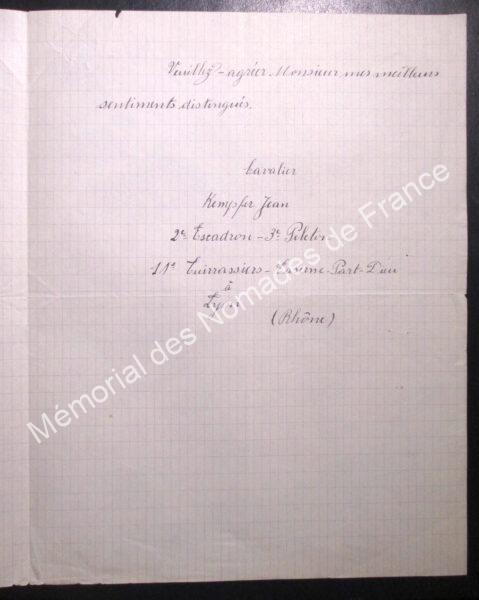 Veuillez-agréer Monsieur, mes meilleurs
sentiments distingués.
Cavalier
Kempfer Jean
2e Escadron - 3e Peloton
11e Cuirassiers - Caserne Part-Dieu
à
Lyon
(Rhône)
Mémorial des Nomades de France